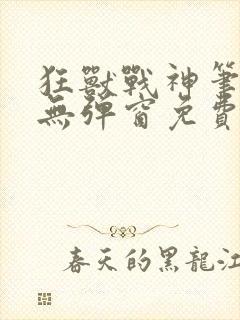 狂獸戰神筆
無彈窗免費
春天的黑龍江